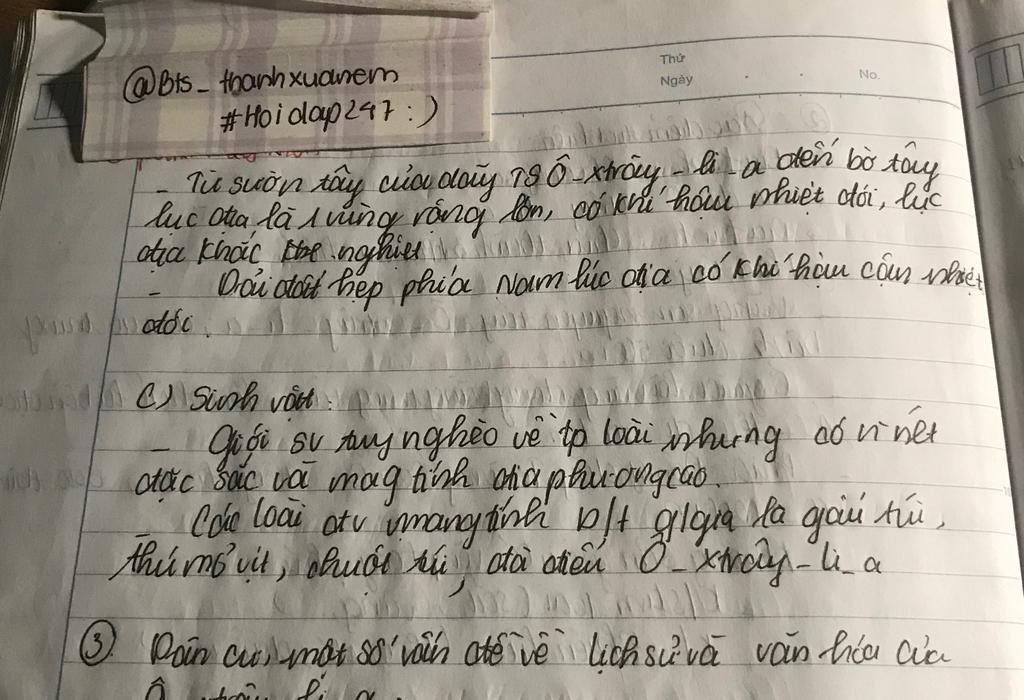 @Bts_thanhxuanem
#Hoidap247 :)
Thứ
Ngày
No.
- Từ sườn tây của dãy TS Ô-xtrây-li-a đến bờ tây
lục địa là 1 vùng rộng lớn, có khí hậu nhiệt đới, lục
địa khắc nghiệt
- Dải đất hẹp phía Nam lục địa có khí hậu cận nhiệt
đới.
C) Sinh vật:
- Giới sv tuy nghèo về tp loài nhưng có n` nét
đặc sắc và mag tính địa phương cao.
- Các loài đtv mang tính b/t q/gia là gấu túi,
thú mỏ vịt, chuột túi, đà điểu Ô-xtrây-li-a
③ Dân cư, một số vấn đề về lịch sử và văn hóa của